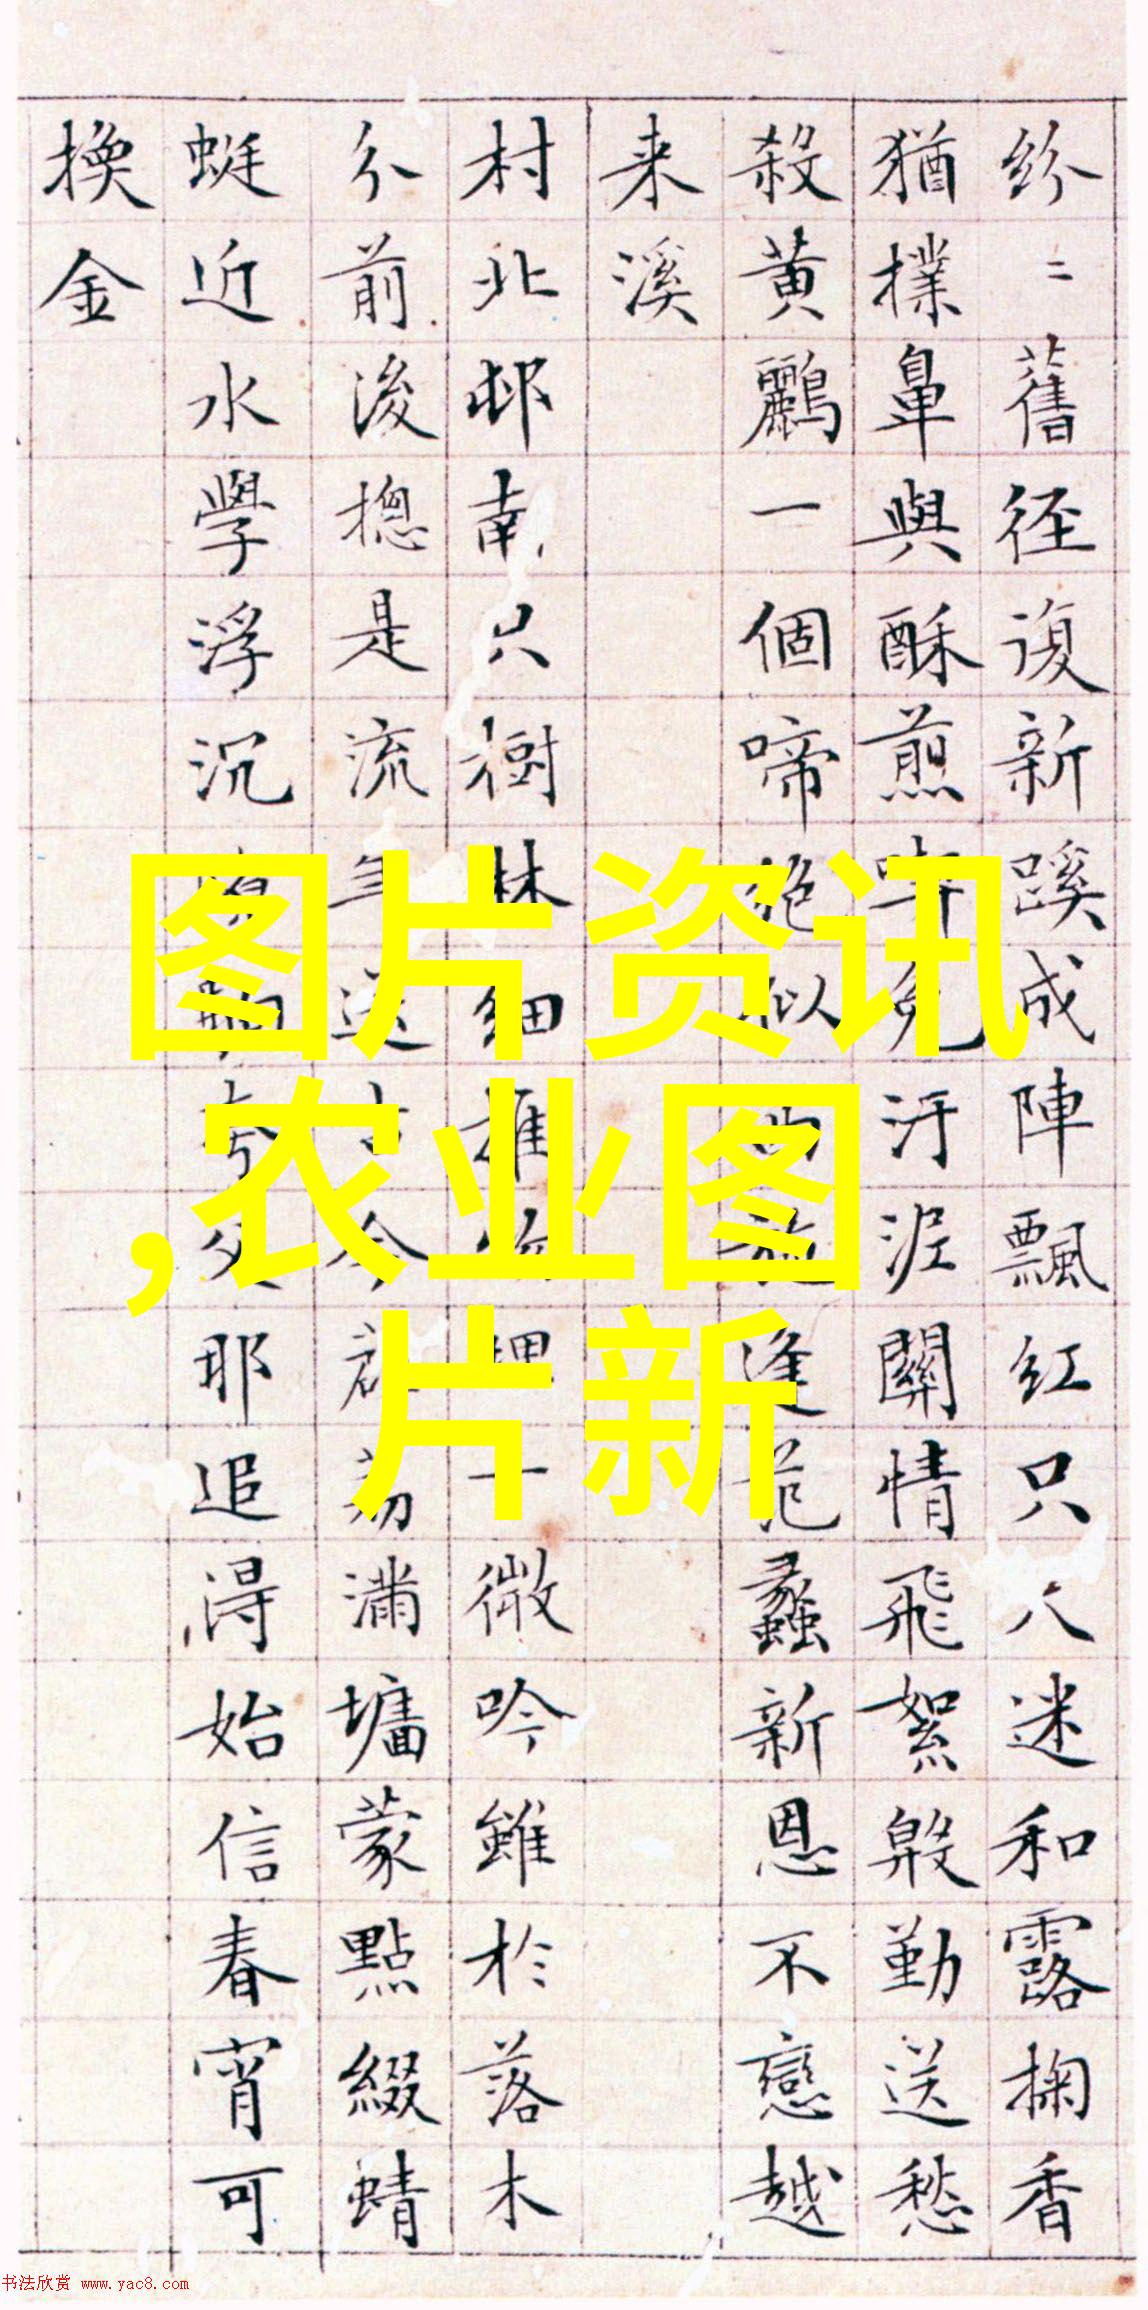 紛二舊徑復新蹊成陣飄紅只迷和露掬香
猶撲鼻與酥煎汙泥關情飛絮殷勤送愁
殺黃鸝一個啼絶似逢范蠡新恩不戀越
来溪
村北邨南只樹林細微吟雖於落木
分前後摠是流年送今滿墉蒙點綴蜻
蜓近水學浮沉耶追得始信春宵可
換金
图片资讯
,农业图
片新
书法欣赏 www.yac8.com